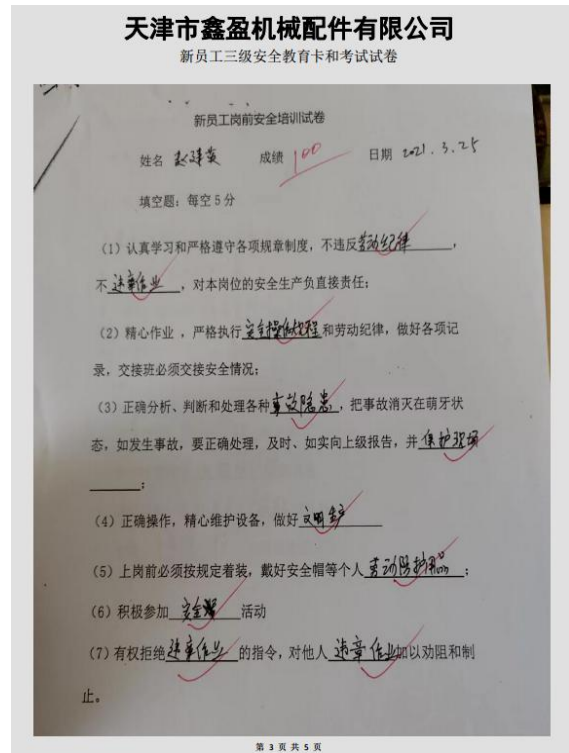 天津市鑫盈机械配件有限公司
新员工三级安全教育卡和考试试卷
新员工岗前安全培训试卷
姓名 赵建英 成绩 100 日期 2021.3.25
填空题：每空5分
（1）认真学习和严格遵守各项规章制度，不违反劳动纪律，
不违章作业，对本岗位的安全生产负直接责任；
（2）精心作业，严格执行安全操作规程和劳动纪律，做好各项记
录，交接班必须交接安全情况；
（3）正确分析、判断和处理各种事故隐患，把事故消灭在萌牙状
态，如发生事故，要正确处理，及时、如实向上级报告，并保护现场
；
（4）正确操作，精心维护设备，做好文明生产
（5）上岗前必须按规定着装，戴好安全帽等个人劳动防护用品；
（6）积极参加安全活动
（7）有权拒绝违章作业的指令，对他人违章作业加以劝阻和制
止。
第 3 页 共 5 页